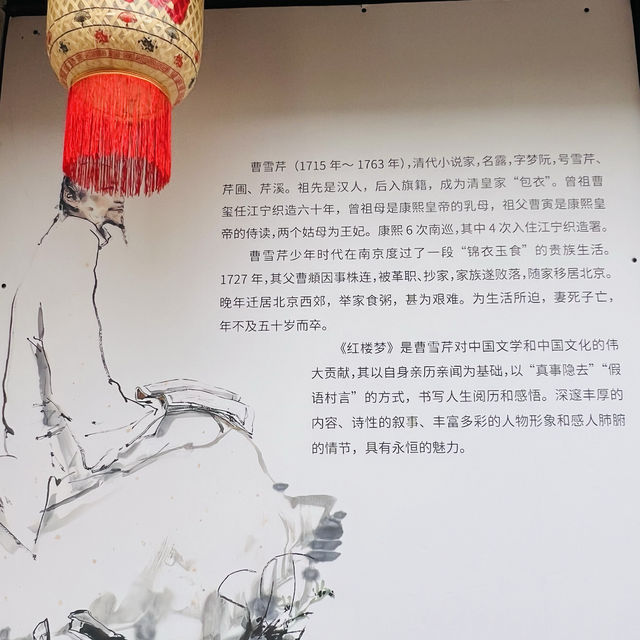 曹雪芹（1715 年～ 1763 年），清代小说家，名霑，字梦阮，号雪芹、
芹圃、芹溪。祖先是汉人，后入旗籍，成为清皇家“包衣”。曾祖曹
玺任江宁织造六十年，曾祖母是康熙皇帝的乳母，祖父曹寅是康熙皇
帝的侍读，两个姑母为王妃。康熙 6 次南巡，其中 4 次入住江宁织造署。
曹雪芹少年时代在南京度过了一段“锦衣玉食”的贵族生活。
1727 年，其父曹頫因事株连，被革职、抄家，家族遂败落，随家移居北京。
晚年迁居北京西郊，举家食粥，甚为艰难。为生活所迫，妻死子亡，
年不及五十岁而卒。
《红楼梦》是曹雪芹对中国文学和中国文化的伟
大贡献，其以自身亲历亲闻为基础，以“真事隐去”“假
语村言”的方式，书写人生阅历和感悟。深邃丰厚的
内容、诗性的叙事、丰富多彩的人物形象和感人肺腑
的情节，具有永恒的魅力。